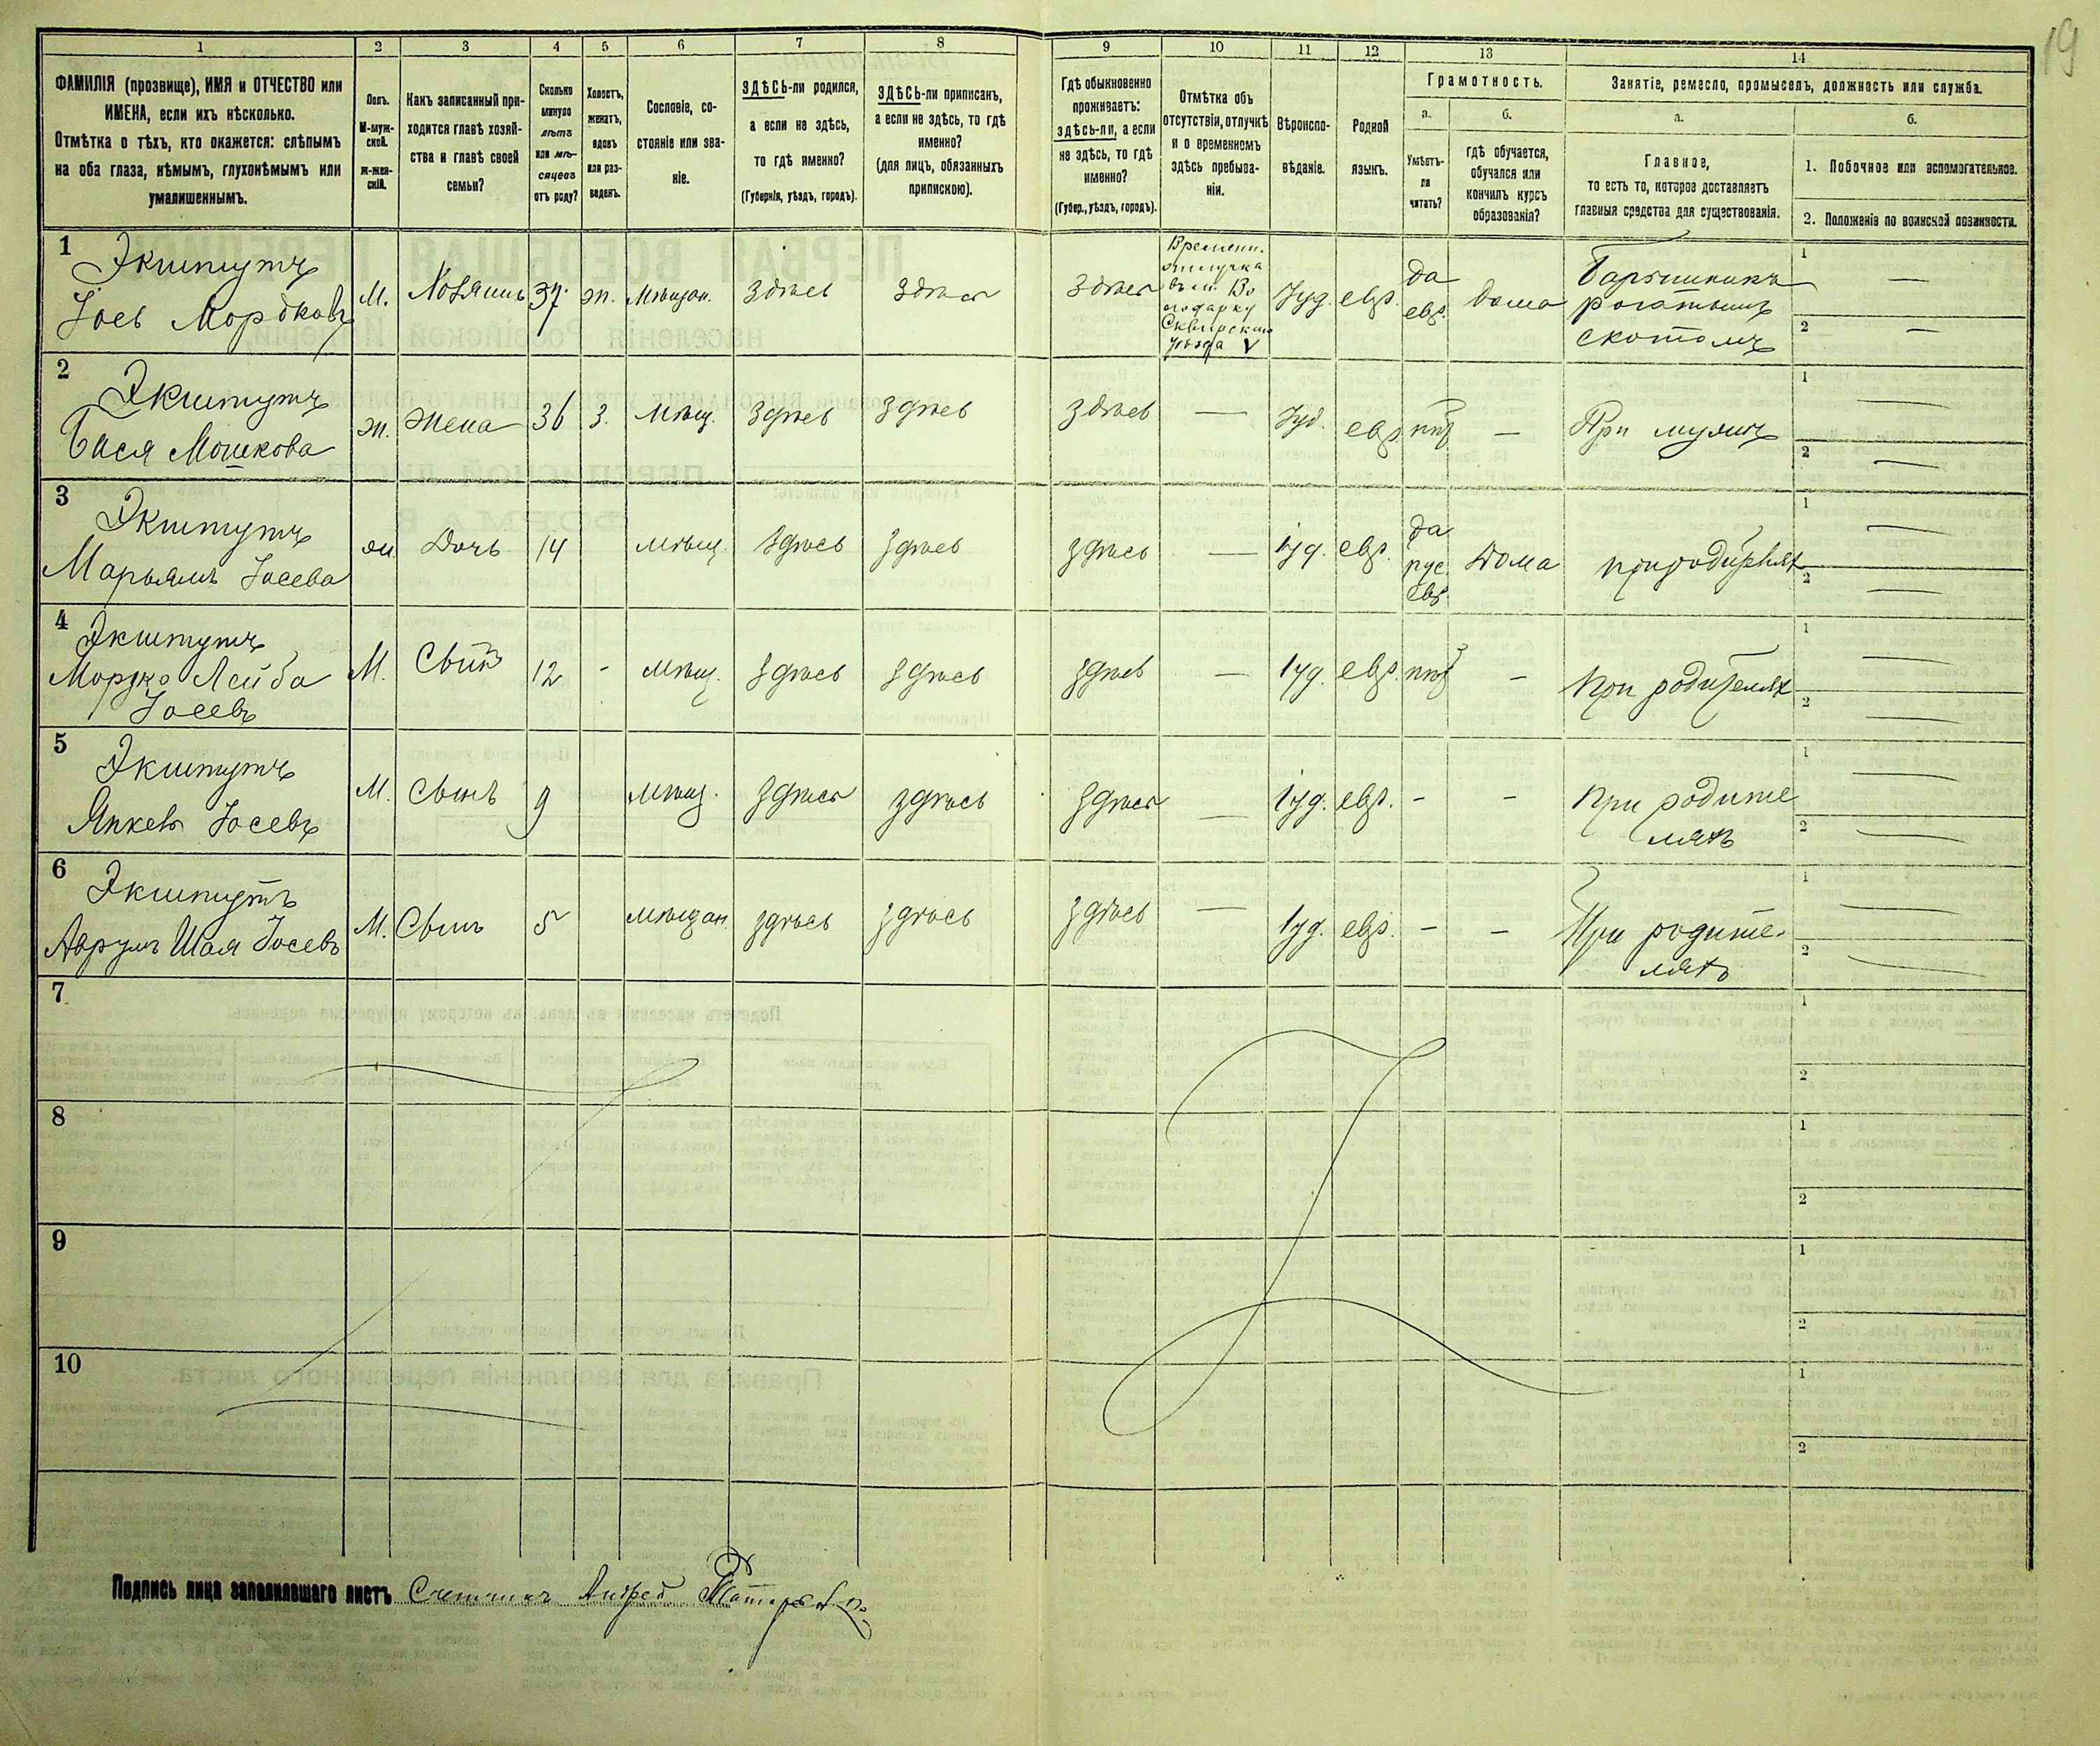 19
1 2 3 4 5 6 7 8 9 10 11 12 13 14
ФАМИЛІЯ (прозвище), ИМЯ и ОТЧЕСТВО или
ИМЕНА, если ихъ нѣсколько.
Отмѣтка о тѣхъ, кто окажется: слѣпымъ
на оба глаза, нѣмымъ, глухонѣмымъ или
умалишеннымъ.
Полъ.
М-муж-
ской.
ж-жен-
скій.
Какъ записанный при-
ходится главѣ хозяй-
ства и главѣ своей
семьи?
Сколько
минуло
лѣтъ
или мѣ-
сяцевъ
отъ роду?
Холостъ,
женатъ,
вдовъ
или раз-
веденъ.
Сословіе, со-
стояніе или зва-
ніе.
ЗДѢСЬ-ли родился,
а если не здѣсь,
то гдѣ именно?
(Губернія, уѣздъ, городъ).
ЗДѢСЬ-ли приписанъ,
а если не здѣсь, то гдѣ
именно?
(для лицъ, обязанныхъ
припискою).
Гдѣ обыкновенно
проживаетъ:
здѣсь-ли, а если
не здѣсь, то гдѣ
именно?
(Губер., уѣздъ, городъ).
Отмѣтка объ
отсутствіи, отлучкѣ
и о временномъ
здѣсь пребыва-
ніи.
Вѣроиспо-
вѣданіе.
Родной
языкъ.
Грамотность.
а.
Умѣетъ-
ли
читать?
б.
гдѣ обучается,
обучался или
кончилъ курсъ
образованія?
Занятіе, ремесло, промыселъ, должность или служба.
а.
Главное,
то есть то, которое доставляетъ
главныя средства для существованія.
б.
1. Побочное или вспомогательное.
2. Положеніе по воинской повинности.
1
Экштутъ
Іось Мордковъ
М. Хозяинъ 37 ж. Мѣщан. здѣсь здѣсь здѣсь
Времени.
отлучка
въ м. Во
лодарку
Сквирскаго
уѣзда V
Іуд. евр.
да
евр.
дома
Барышникъ
рогатымъ
скотомъ
1 —
2 —
2
Экштутъ
Бася Мошкова
ж. жена 36 З. мѣщ. здѣсь здѣсь здѣсь — Іуд. евр. нѣт — При мужѣ
1 —
2 —
3
Экштутъ
Марьямъ Іосева
ж. Дочь 14 мѣщ. здѣсь здѣсь здѣсь — іуд. евр.
да
рус.
евр.
Дома при родителях
1 —
2 —
4
Экштутъ
Мордко Лейба
Іосевъ
М. Сынъ 12 - мѣщ. здѣсь здѣсь здѣсь — іуд. евр. нѣт - При родителях
1 —
2 —
5
Экштутъ
Янкель Іосевъ
М. Сынъ 9 мѣщ. здѣсь здѣсь здѣсь — іуд. евр. - -
При родите
ляхъ
1 —
2 —
6
Экштутъ
Аврумъ Шая Іосевъ
М. Сынъ 5 мѣщан. здѣсь здѣсь здѣсь — іуд. евр. - -
При родите-
ляхъ
1 —
2 —
7
1
2
8
1
2
9
1
2
10
1
2
Подпись лица заполнившаго листъ Счетчикъ Андрей